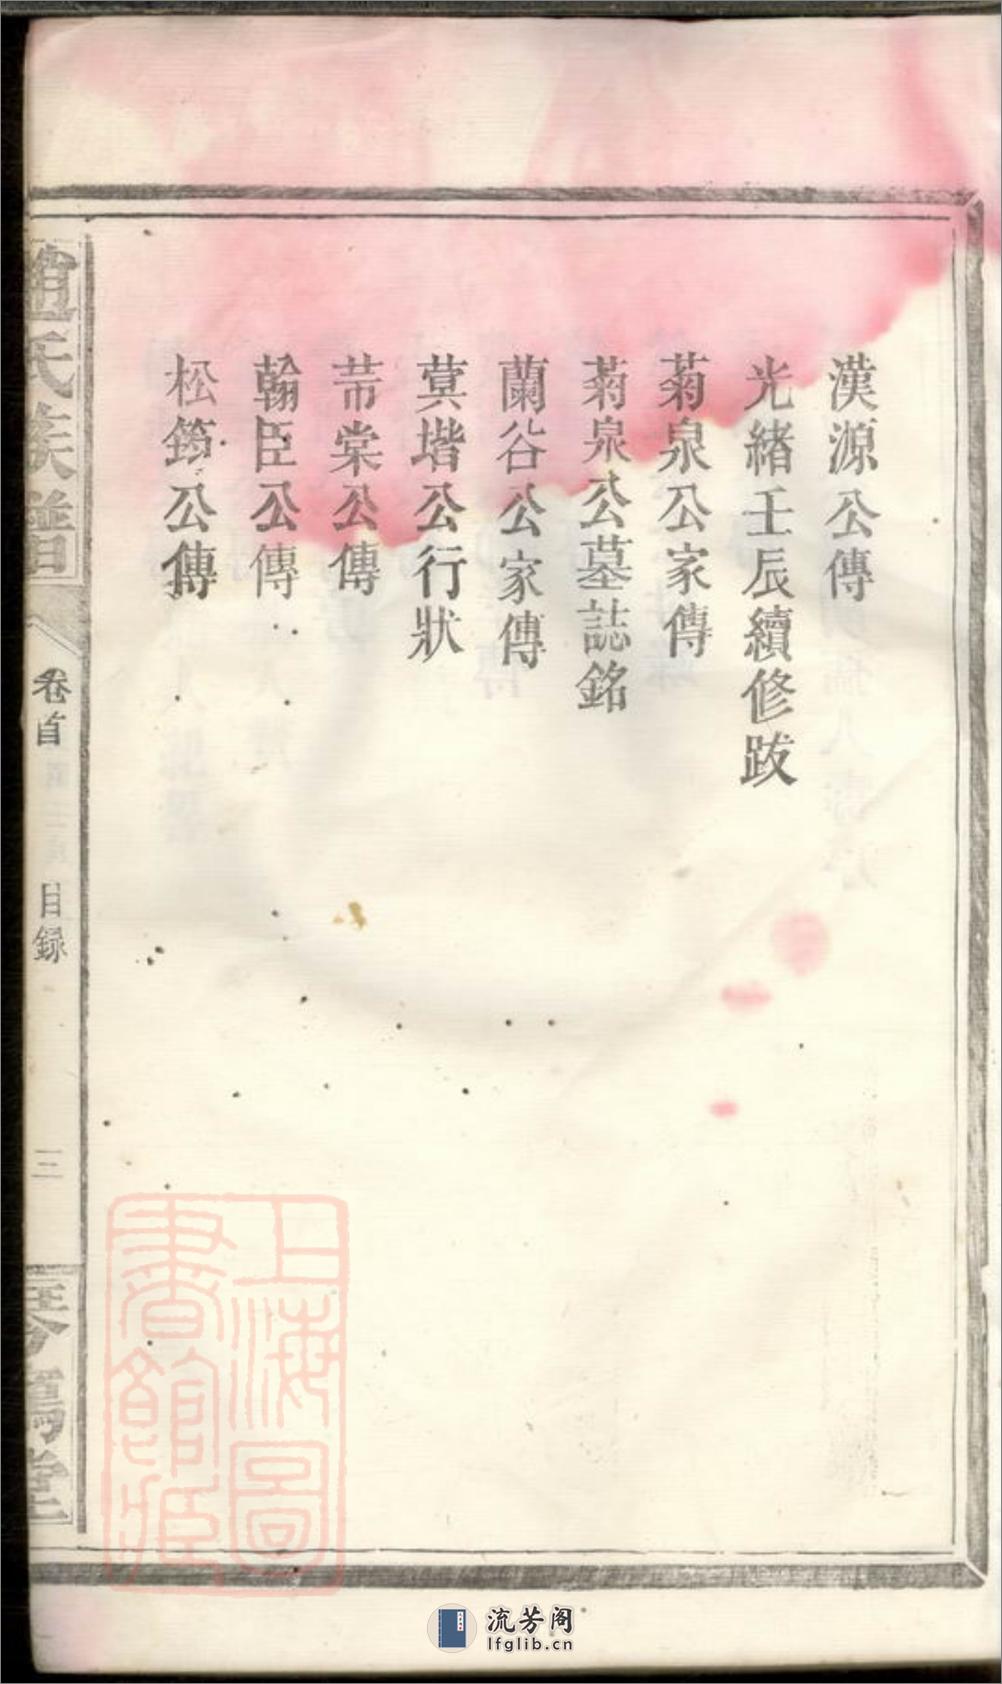 漢源公傳
光緒壬辰續修跋
菊泉公家傳
菊泉公墓誌銘
蘭谷公家傳
蓂堦公行狀
芾棠公傳
翰臣公傳
松筠公傳
趙氏族譜
卷首
目錄
三
琴鶴堂
上海圖書館藏
流芳阁
lfglib.cn